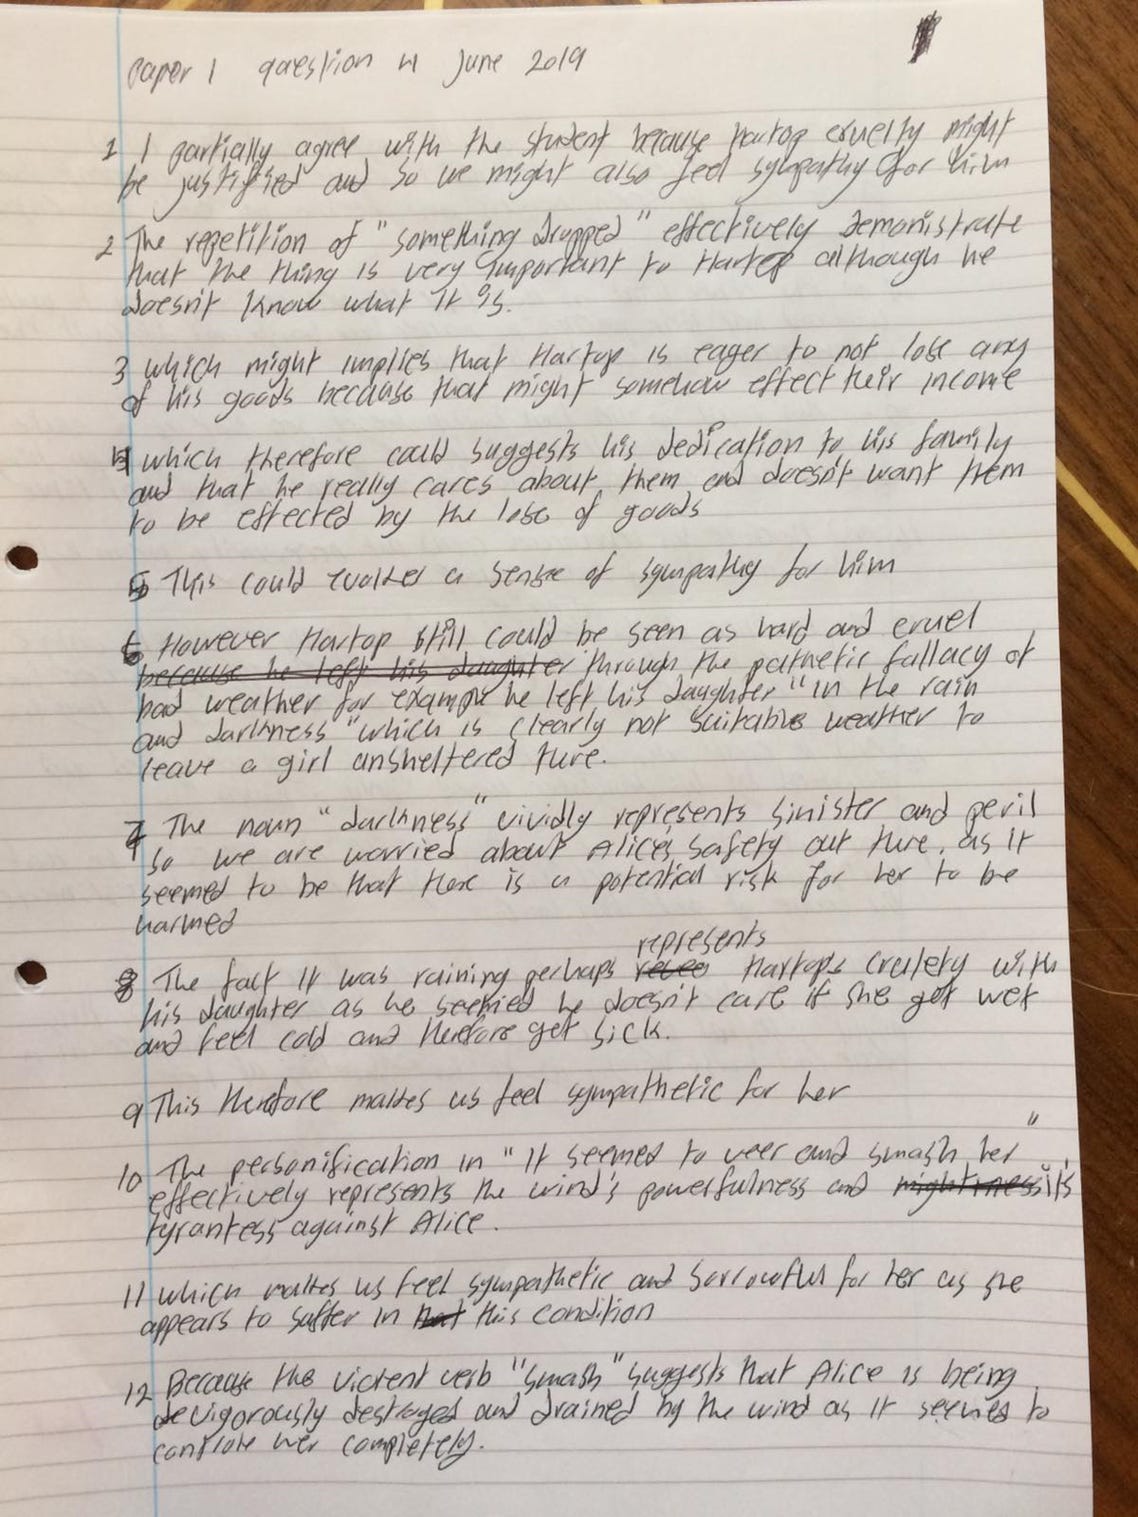 Paper 1 question 4 June 2019
1 I partially agree with the student because Hartop cruelty might
be justified and so we might also feel sympathy for him
2 The repetition of "something dropped" effectively demonistrate
that the thing is very important to Hartop although he
doesn't know what it is.
3 which might implies that Hartop is eager to not lose any
of his goods because that might somehow effect their income
4 which therefore could suggests his dedication to his family
and that he really cares about them and doesn't want them
to be effected by the lose of goods
5 This could evokes a sense of sympathy for him
6 However Hartop still could be seen as hard and cruel
because he left his daughter through the pathetic fallacy of
bad weather for example he left his daughter "in the rain
and darkness" which is clearly not suitable weather to
leave a girl unsheltered ture.
7 The noun "darkness" vividly represents sinister and peril
so we are worried about Alice's safety out ture. as it
seemed to be that there is a potential risk for her to be
harmed
represents
8 The fact it was raining perhaps Hartop's crulety with
his daughter as he seemed he doesn't care if she got wet
and feel cold and therefore get sick.
9 This therefore makes us feel sympathetic for her
10 The personification in "it seemed to veer and smash her"
effectively represents the wind's powerfulness and mightiness it's
tyrantess against Alice.
11 which makes us feel sympathetic and sorrowful for her as she
appears to suffer in that this condition
12 Because the violent verb "smash" suggests that Alice is being
vigorously destroyed and drained by the wind as it seemed to
controle her completely.